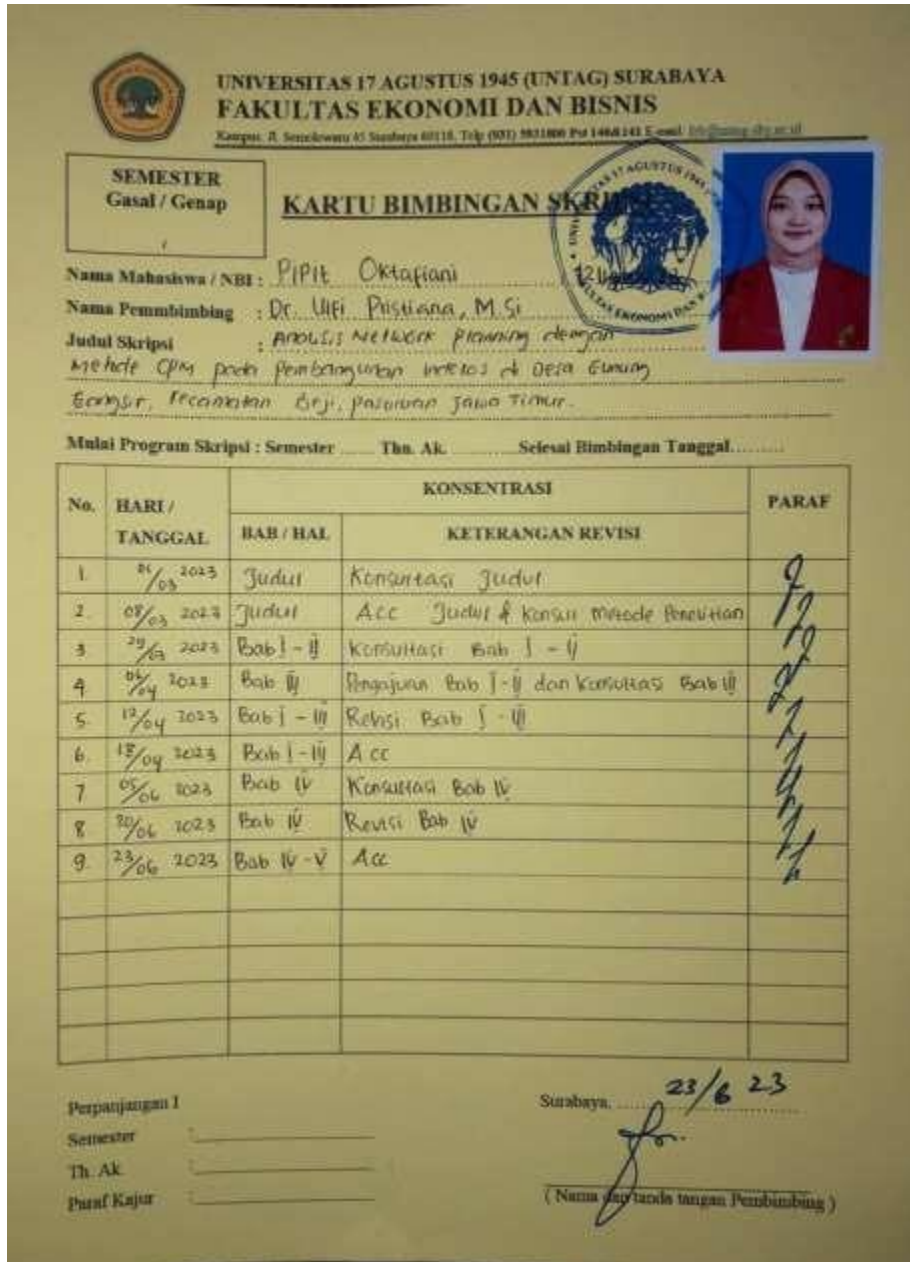 UNIVERSITAS 17 AGUSTUS 1945 (UNTAG) SURABAYA
FAKULTAS EKONOMI DAN BISNIS
Kampus: Jl. Semolowaru 45 Surabaya 60118, Telp (031)
SEMESTER
Gasal / Genap
KARTU BIMBINGAN
Nama Mahasiswa / NBI : Pipit Oktafiani
Nama Pemmbimbing : Dr. Ulfi Pristiana, M.Si
Judul Skripsi : Analisis Network Planning dengan
Metode CPM pada Pembangunan di Desa Gunung
Gangsir, Kecamatan Beji, Pasuruan Jawa Timur.
Mulai Program Skripsi : Semester ........ Thn. Ak. ........ Selesai Bimbingan Tanggal.........
No. HARI / TANGGAL KONSENTRASI PARAF
BAB / HAL KETERANGAN REVISI
1. /03 2023 Judul Konsultasi Judul
2. 08/03 2023 Judul Acc Judul & Konsul Metode Penelitian
3 29/03 2023 Bab I - II Konsultasi Bab I - II
4 /04 2023 Bab III Pengajuan Bab I-II dan Konsultasi Bab III
5 12/04 2023 Bab I - III Revisi Bab I - III
6. 18/04 2023 Bab I - III Acc
7 05/06 2023 Bab IV Konsultasi Bab IV
8 20/06 2023 Bab IV Revisi Bab IV
9. 23/06 2023 Bab IV - V Acc
Perpanjangan I
Semester :
Th. Ak :
Paraf Kajur :
Surabaya, 23/6 23
( Nama dan tanda tangan Pembimbing )